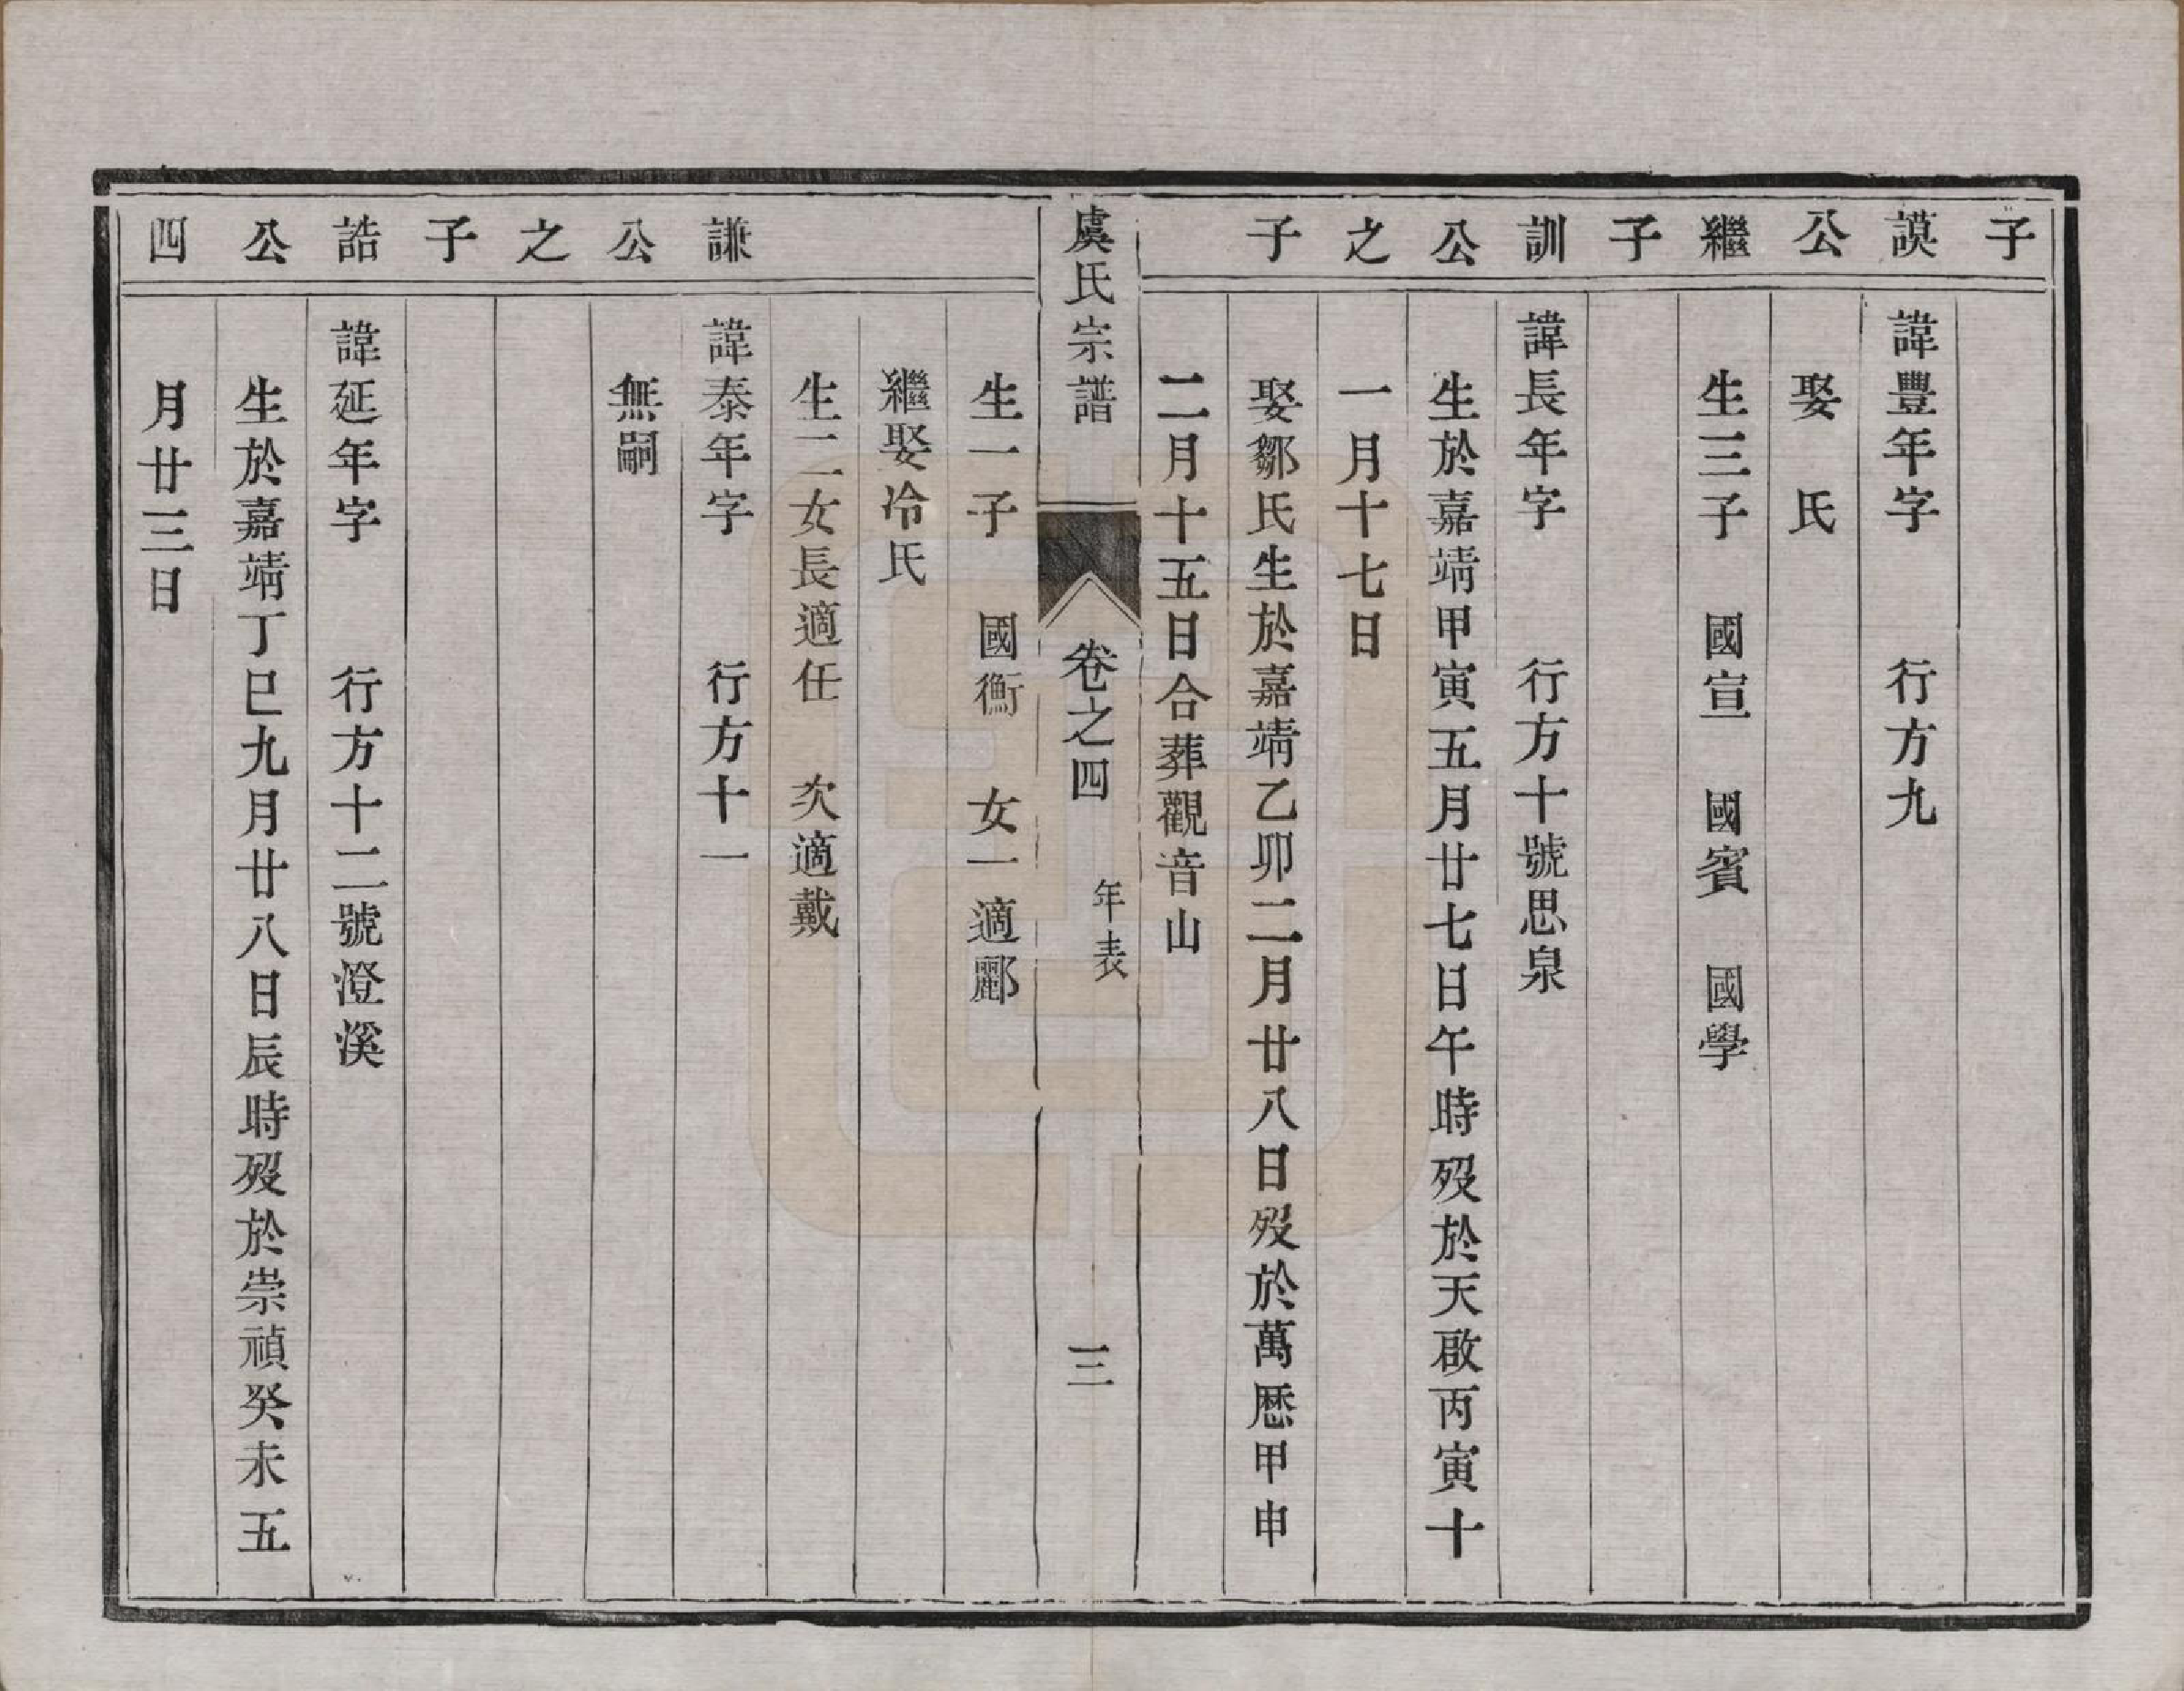 子
謨
公
繼
子
訓
公
之
子
諱豐年字 行方九
娶 氏
生三子 國宣 國賓 國學
諱長年字 行方十號思泉
生於嘉靖甲寅五月廿七日午時歿於天啟丙寅十
一月十七日
娶鄒氏生於嘉靖乙卯二月廿八日歿於萬厯甲申
二月十五日合葬觀音山
虞氏宗譜 卷之四 年表 三
謙
公
之
子
誥
公
四
生一子 國衡 女一適酈
繼娶冷氏
生二女長適任 次適戴
諱泰年字 行方十一
無嗣
諱延年字 行方十二號澄溪
生於嘉靖丁巳九月廿八日辰時歿於崇禎癸未五
月廿三日